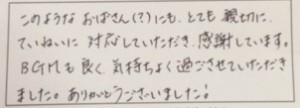 このような おばさん(?)にも、とても 親切に、
ていねいに 対応していただき、感謝しています。
BGMも良く、気持ちよく過ごさせていただき
ました。ありがとうございました!